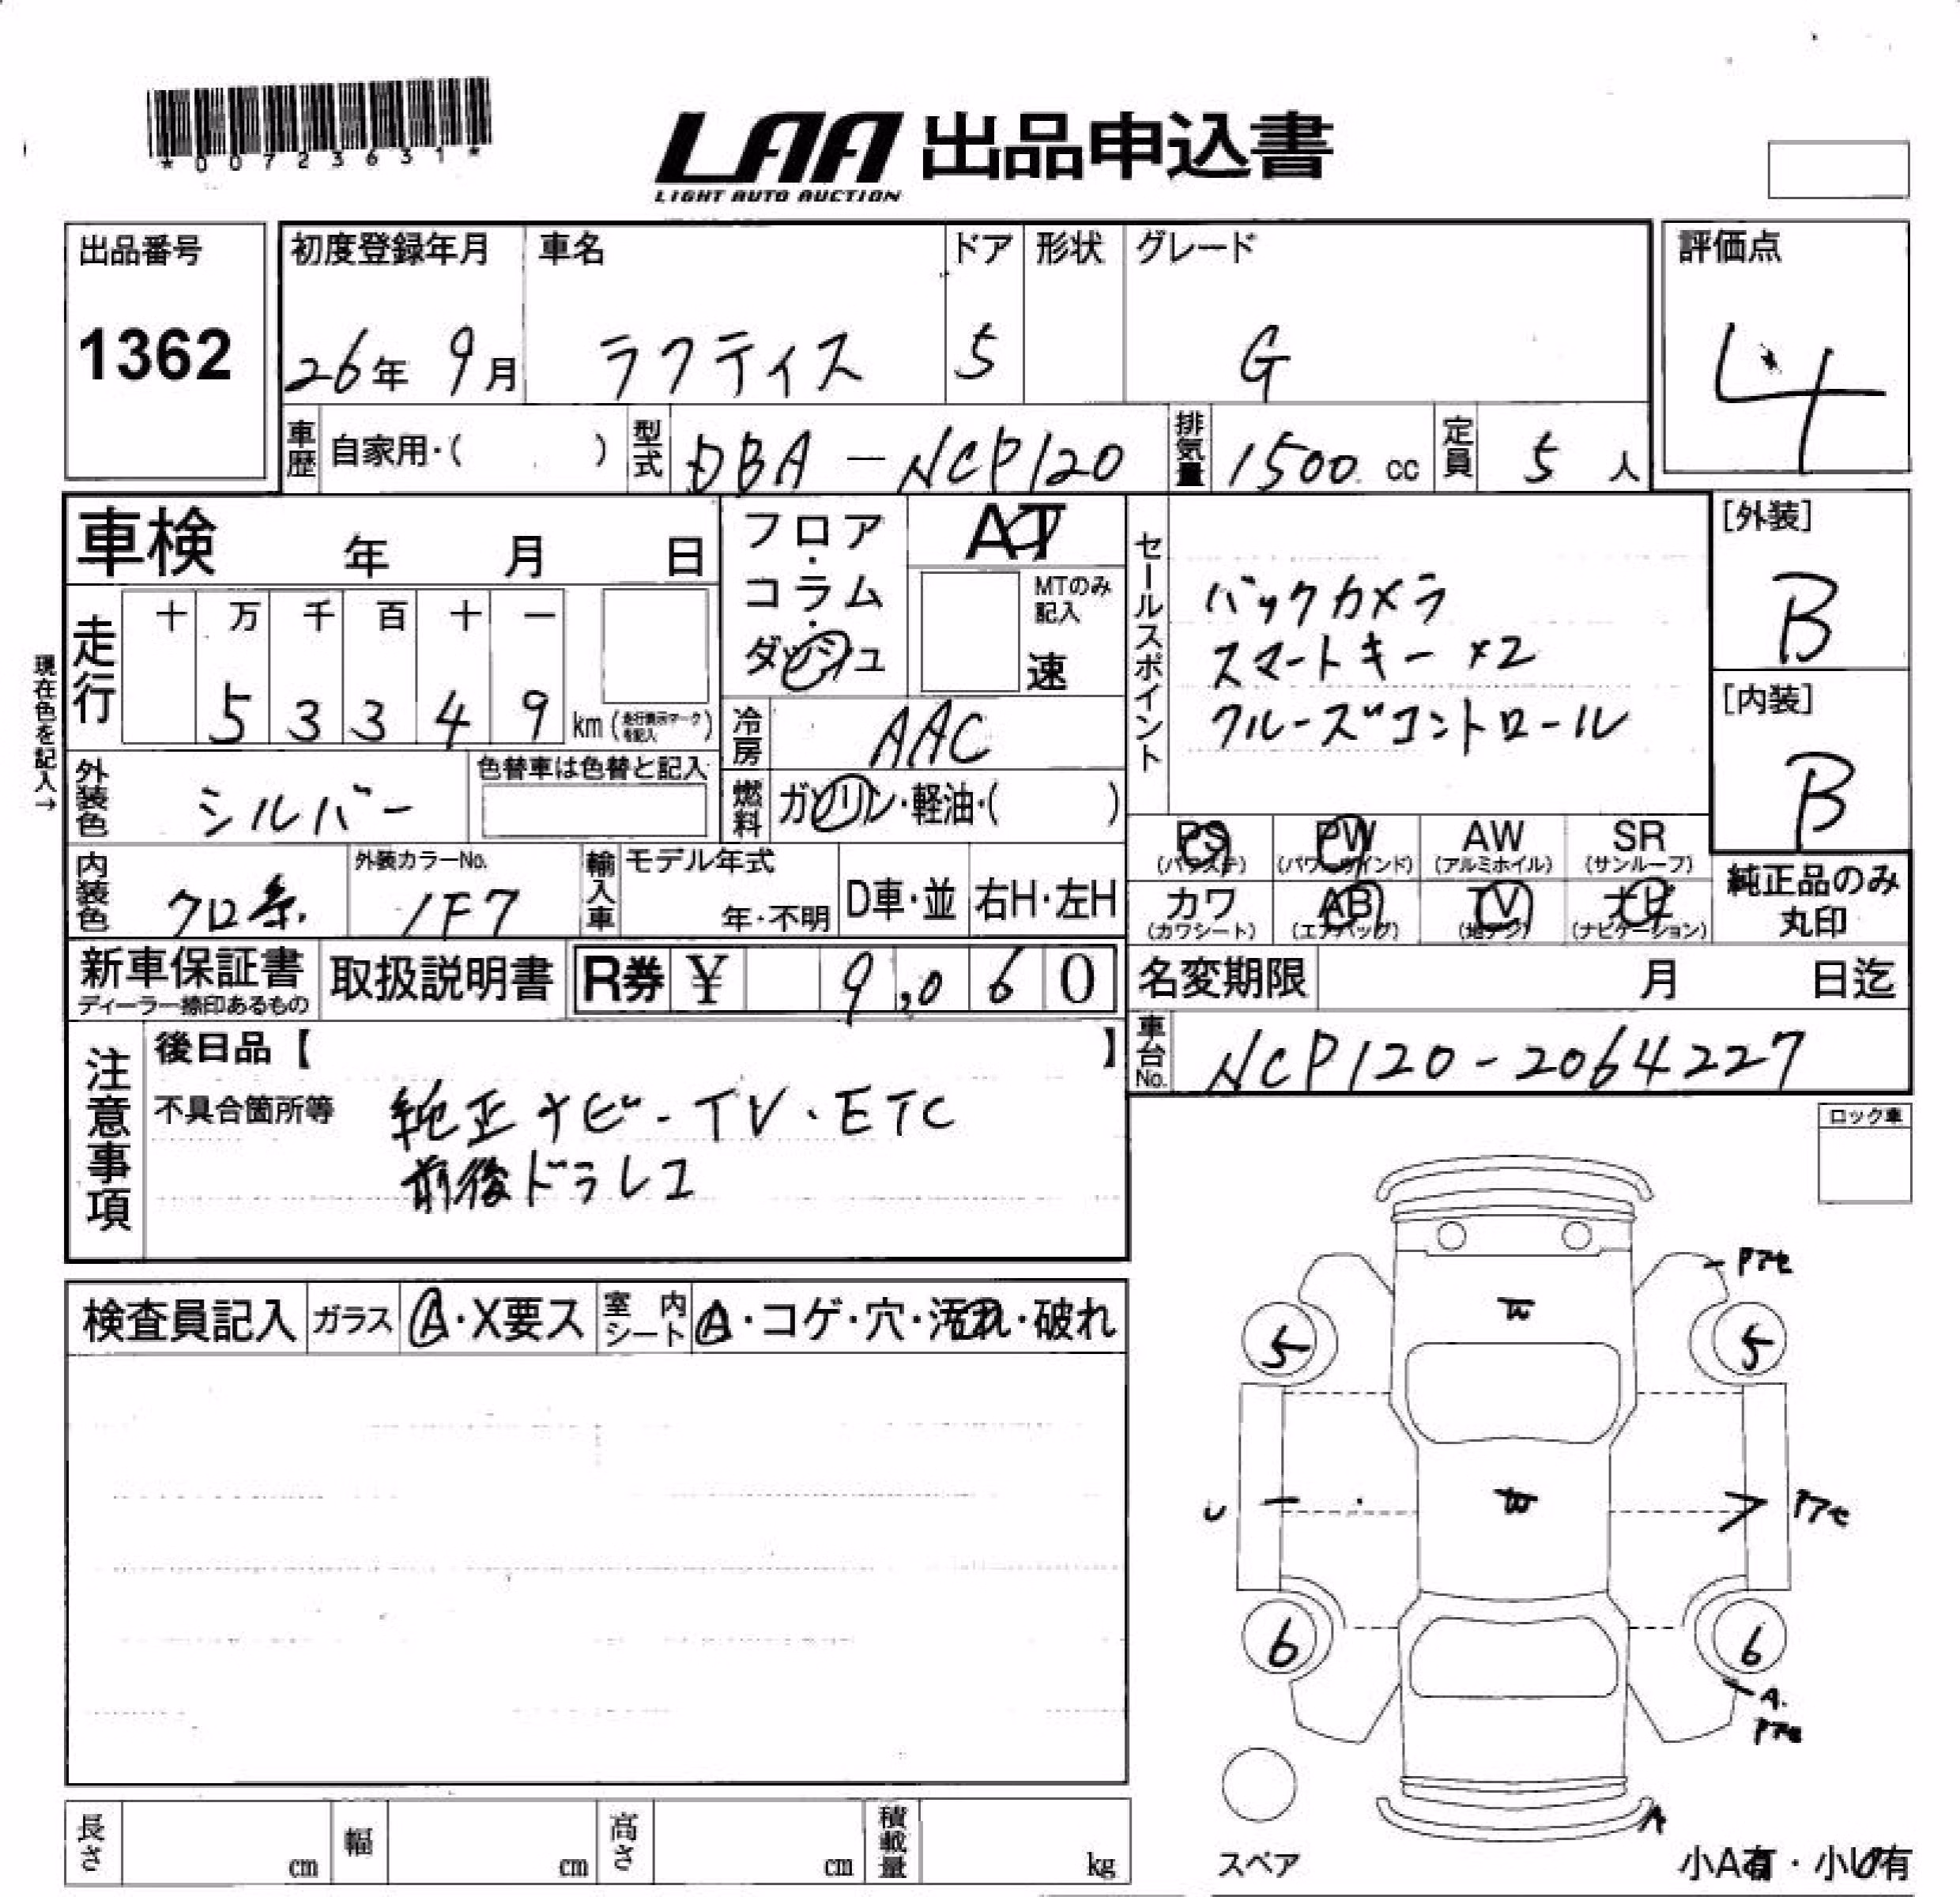 *00723631*
LAA 出品申込書
LIGHT AUTO AUCTION
出品番号
1362
初度登録年月 車名 ドア 形状 グレード 評価点
26年 9月 ラクティス 5 G 4
車歴 自家用・( ) 型式 DBA-NCP120 排気量 1500 cc 定員 5 人
車検 年 月 日
フロア・コラム・ダッシュ
AT
MTのみ記入
速
セールスポイント
バックカメラ
スマートキー ×2
クルーズコントロール
[外装]
B
[内装]
B
現在色を記入→
走行 十 万 千 百 十 一
5 3 3 4 9 km (走行表示マークを記入)
冷房 AAC
外装色 シルバー 色替車は色替と記入
燃料 ガソリン・軽油・( )
内装色 クロ系 外装カラーNo. 1F7
輸入車 モデル年式 年・不明 D車・並 右H・左H
PS (パワステ) PW (パワーウインド) AW (アルミホイル) SR (サンルーフ)
カワ (カワシート) AB (エアバッグ) TV (地デジ) ナビ (ナビゲーション)
純正品のみ
丸印
新車保証書 取扱説明書 R券 ¥ 9,060
ディーラー捺印あるもの
名変期限 月 日迄
車台No. NCP120-2064227
注意事項
後日品【 】
不具合箇所等 純正ナビ-TV・ETC
前後ドラレコ
ロック車
検査員記入 ガラス A・X要ス 室内シート A・コゲ・穴・汚れ・破れ
5 5
U
6 6
A.
A
スペア
小A有・小U有
長さ cm 幅 cm 高さ cm 積載量 kg